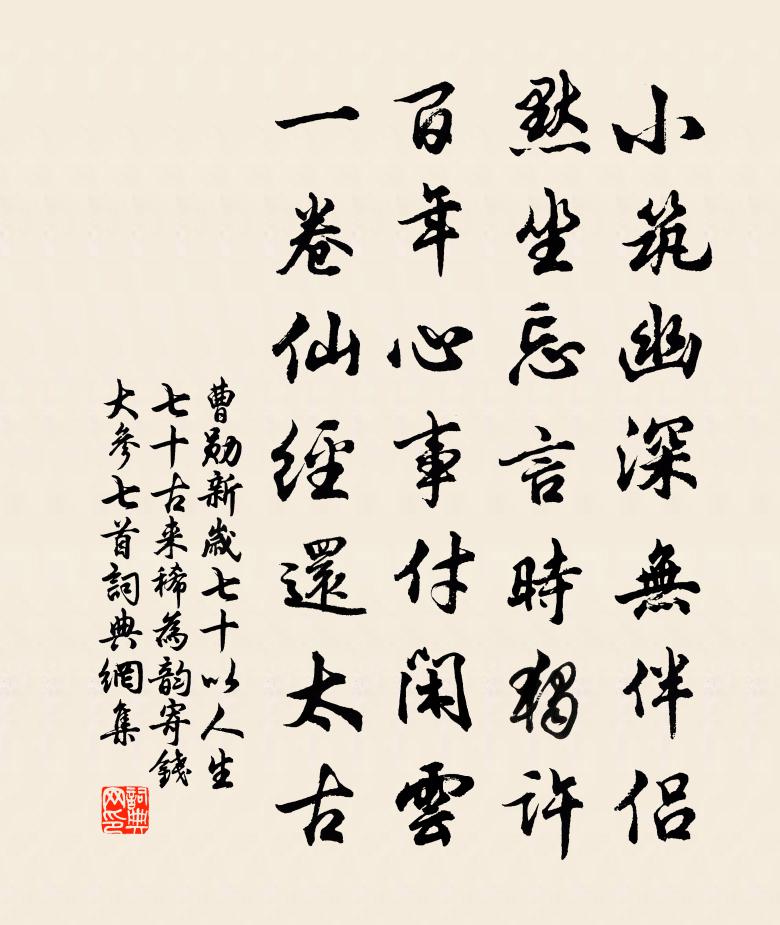 小筑幽深無伴侣
默坐忘言時獨許
百年心事付閑雲
一卷仙經還太古
曹勛新歲七十以人生
七十古来稀為韵寄錢
大參七首詞典網集
詞典
网印